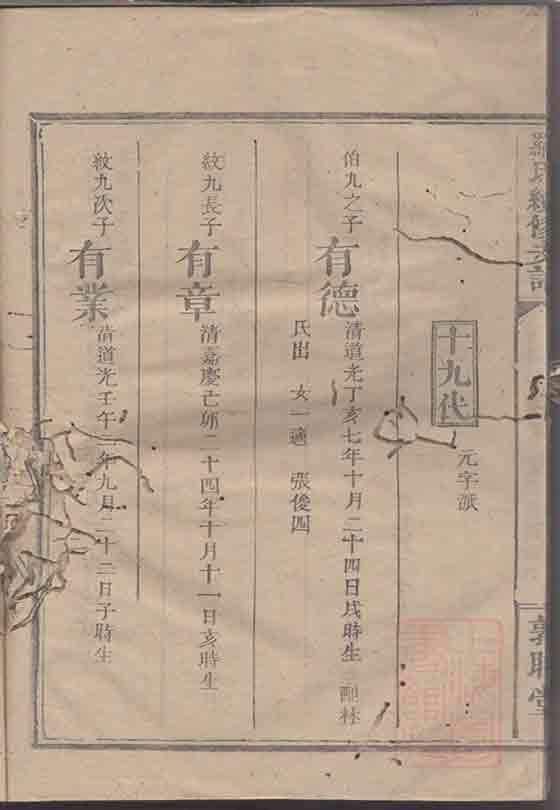 羅氏續修支譜
敦睦堂
十九代
元字派
伯九之子 有德 清道光丁亥七年十月二十四日戌時生 配林
氏出 女一適 張俊四
紋九長子 有章 清嘉慶己卯二十四年十月十一日亥時生
紋九次子 有業 清道光壬午二年九月二十二日子時生